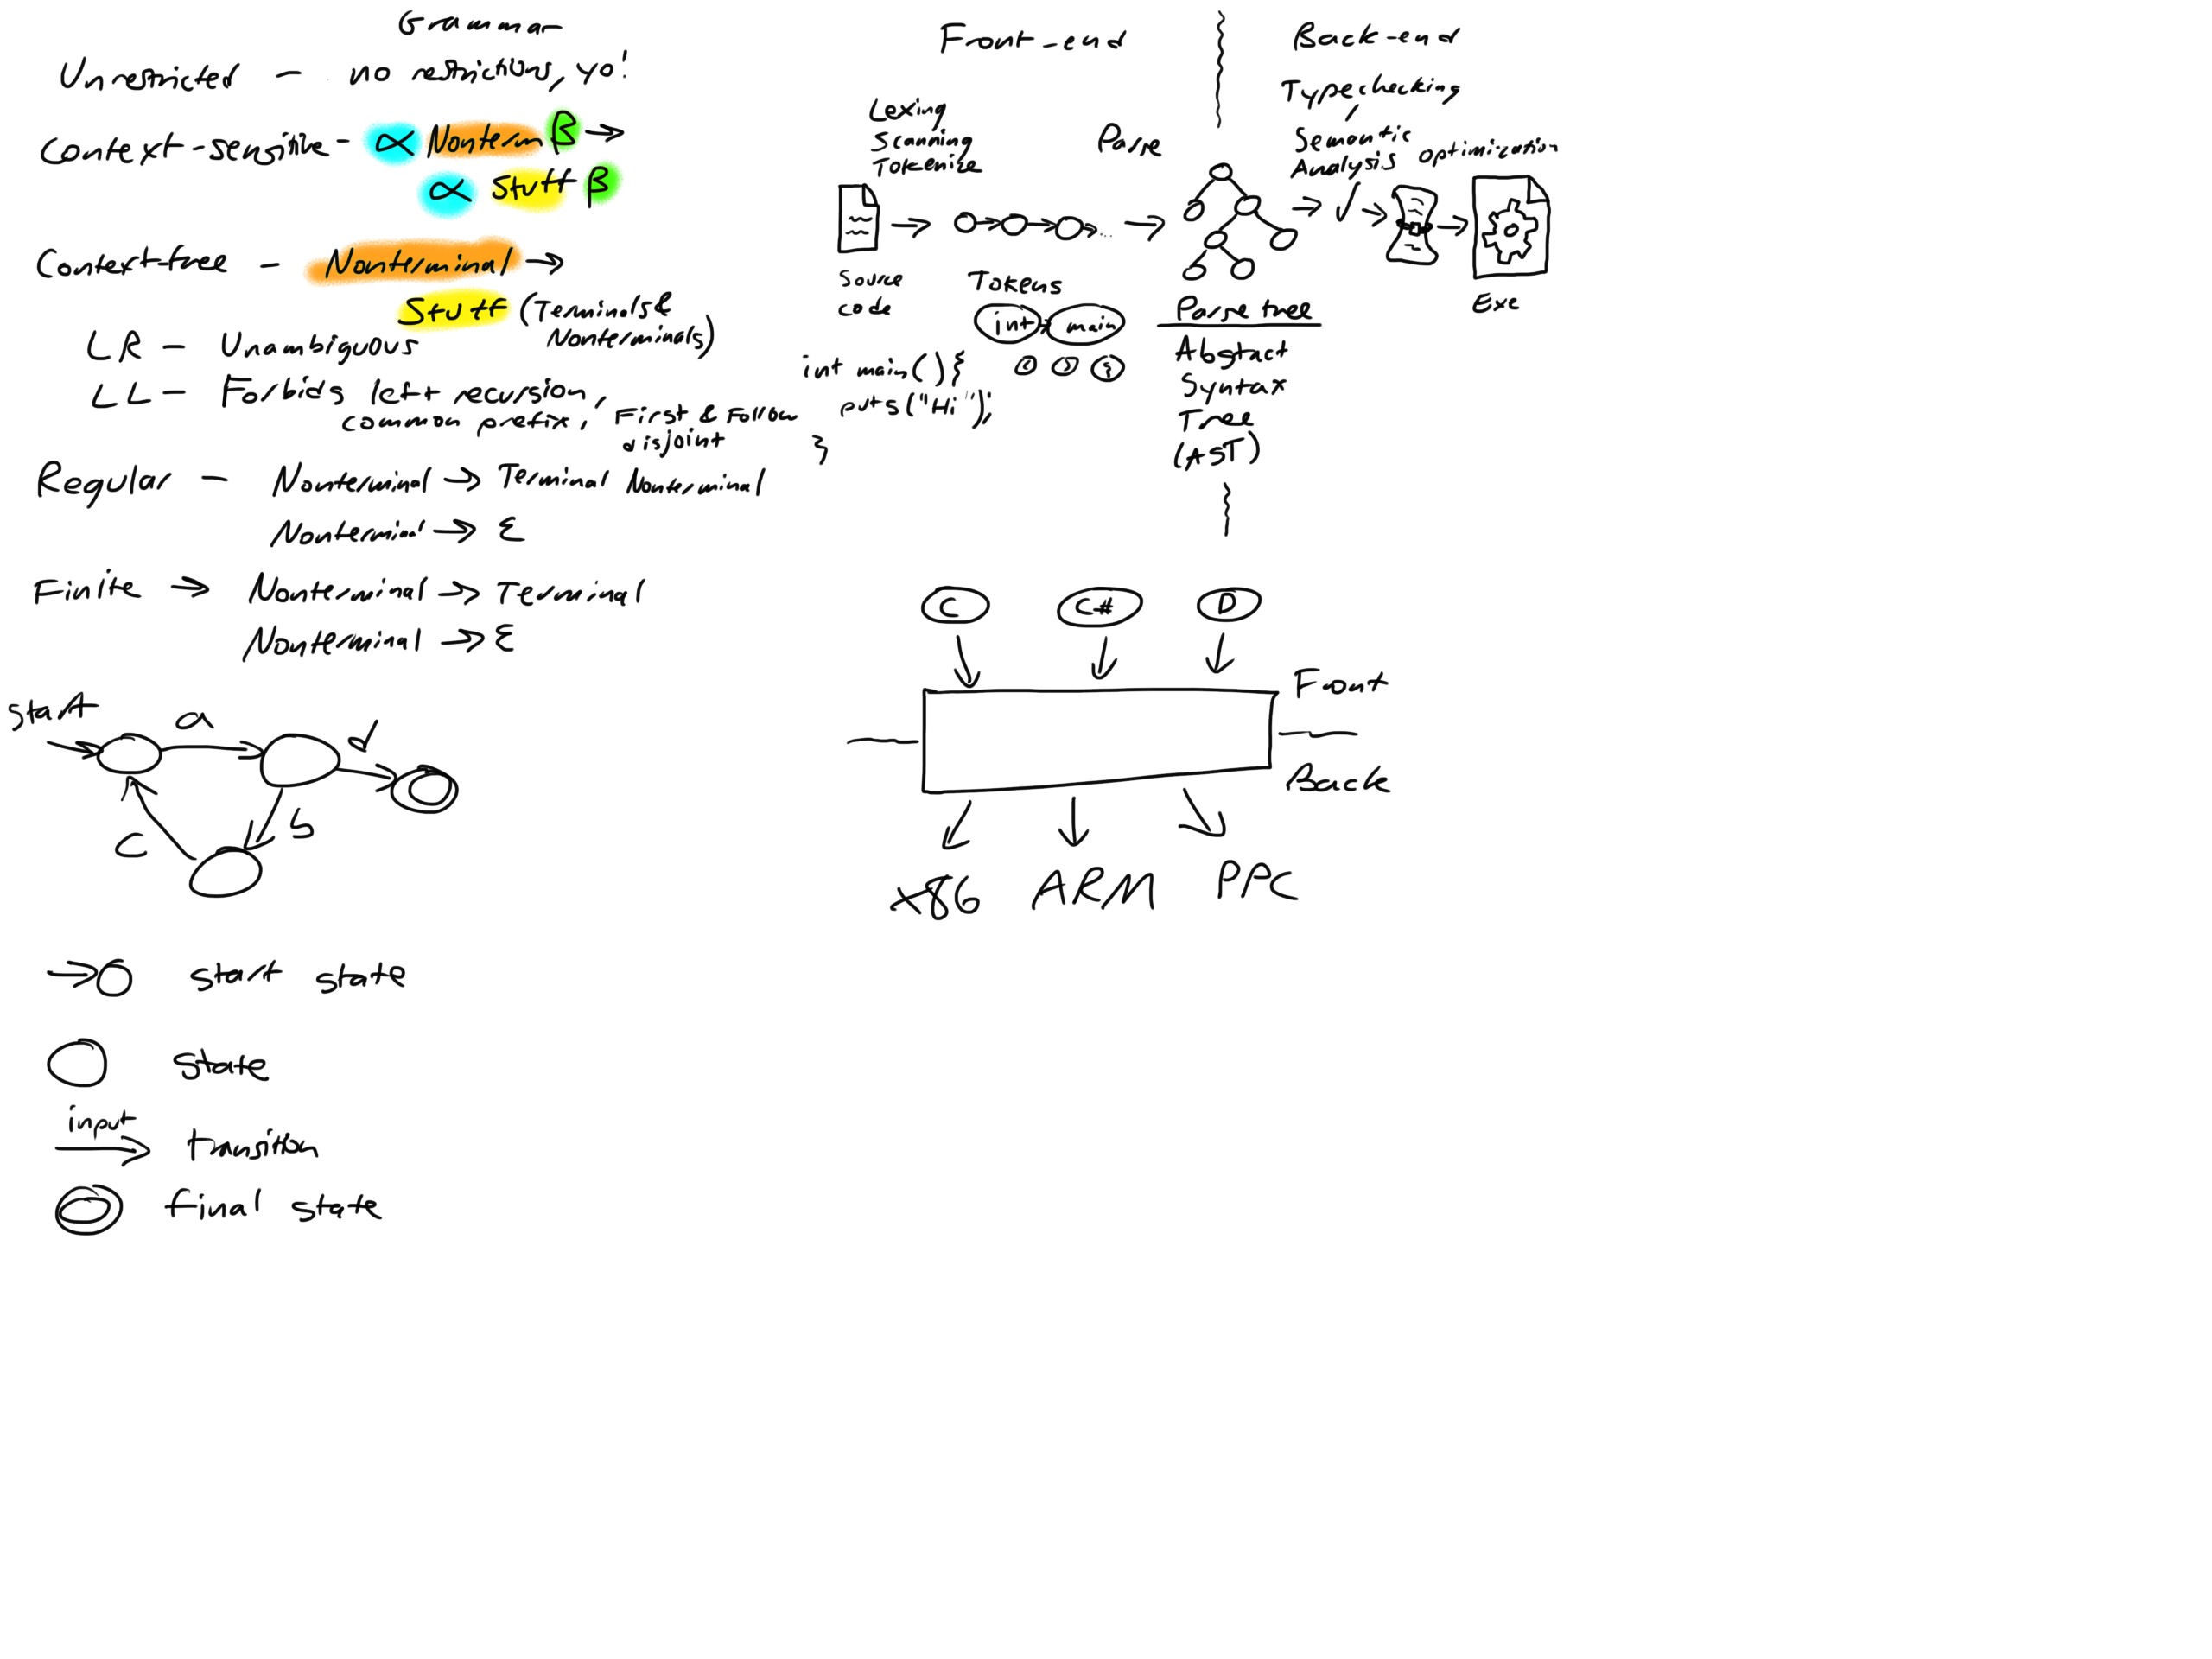 Grammar
Unrestricted - no restrictions, yo!
Context-sensitive - ∝ Nonterm β →
∝ Stuff β
Context-free - Nonterminal →
Stuff (Terminals &
Nonterminals)
LR - Unambiguous
LL - Forbids left recursion,
common prefix, First & Follow
disjoint
Regular - Nonterminal → Terminal Nonterminal
Nonterminal → ε
Finite → Nonterminal → Terminal
Nonterminal → ε
start
a
d
b
c
→ start state
state
input
transition
final state
Front-end
Back-end
Lexing
Scanning
Tokenize
Parse
Typechecking,
Semantic
Analysis
optimization
Source
code
Tokens
int main
( ) {
Parse tree
Abstact
Syntax
Tree
(AST)
Exe
int main() {
puts("Hi");
}
C C# D
Front
Back
x86 ARM PPC